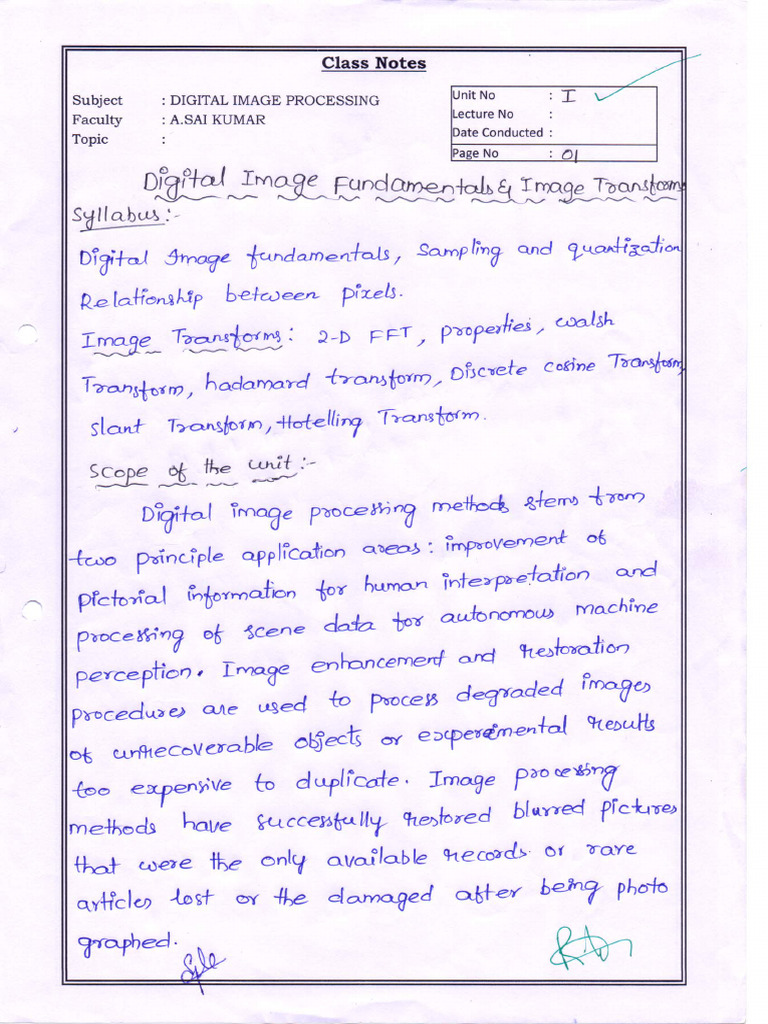 Class Notes
Subject : DIGITAL IMAGE PROCESSING
Faculty : A.SAI KUMAR
Topic :
Unit No : I
Lecture No :
Date Conducted :
Page No : 01
Digital Image Fundamentals & Image Transforms
Syllabus:-
Digital Image fundamentals, Sampling and quantization
Relationship between pixels.
Image Transforms: 2-D FFT, properties, walsh
Transform, hadamard transform, Discrete cosine Transform,
slant Transform, Hotelling Transform.
Scope of the unit:-
Digital image processing methods stems from
two principle application areas: improvement of
pictorial information for human interpretation and
processing of scene data for autonomous machine
perception. Image enhancement and restoration
procedures are used to process degraded images
of unrecoverable objects or experimental results
too expensive to duplicate. Image processing
methods have successfully restored blurred pictures
that were the only available records or rare
articles lost or the damaged after being photo
graphed.